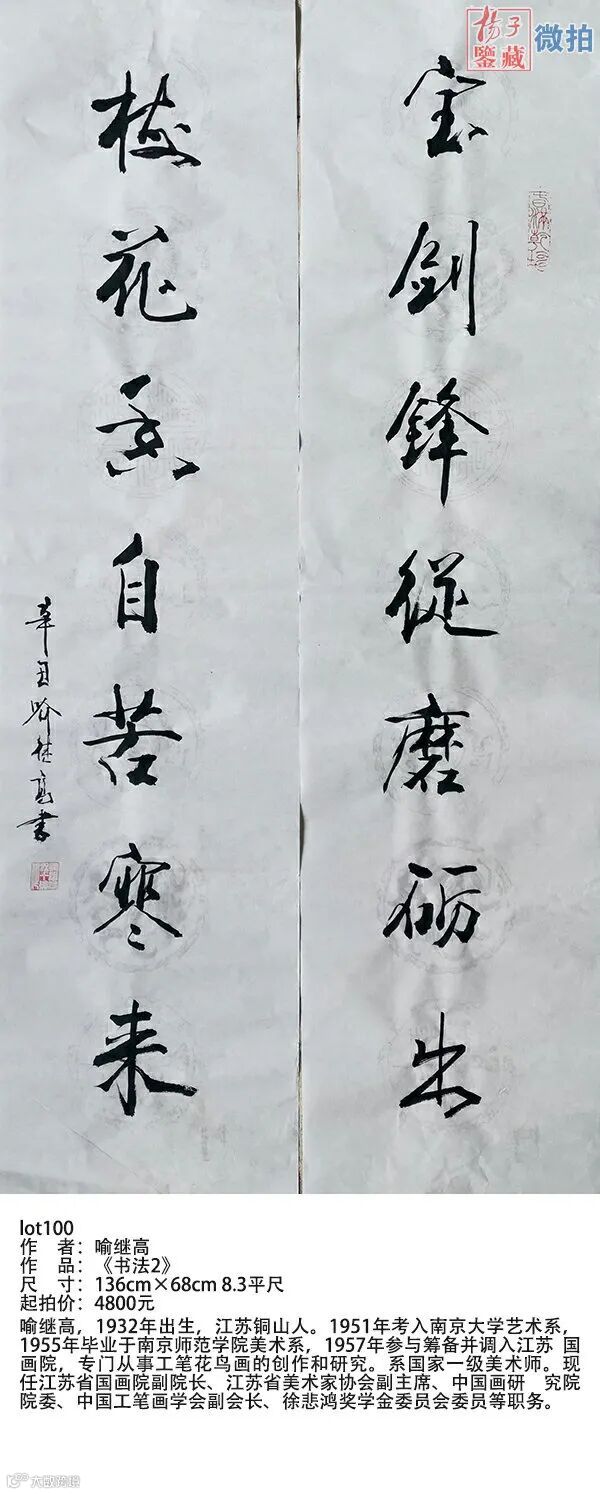 揚子
鑒藏
微拍
宝剑鋒從磨砺出
梅花香自苦寒来
辛丑喻继高书
lot100
作 者：喻继高
作 品：《书法2》
尺 寸：136cm×68cm 8.3平尺
起拍价：4800元
喻继高，1932年出生，江苏铜山人。1951年考入南京大学艺术系，
1955年毕业于南京师范学院美术系，1957年参与筹备并调入江苏 国
画院，专门从事工笔花鸟画的创作和研究。系国家一级美术师。现
任江苏省国画院副院长、江苏省美术家协会副主席、中国画研 究院
院委、中国工笔画学会副会长、徐悲鸿奖学金委员会委员等职务。
大数跨境